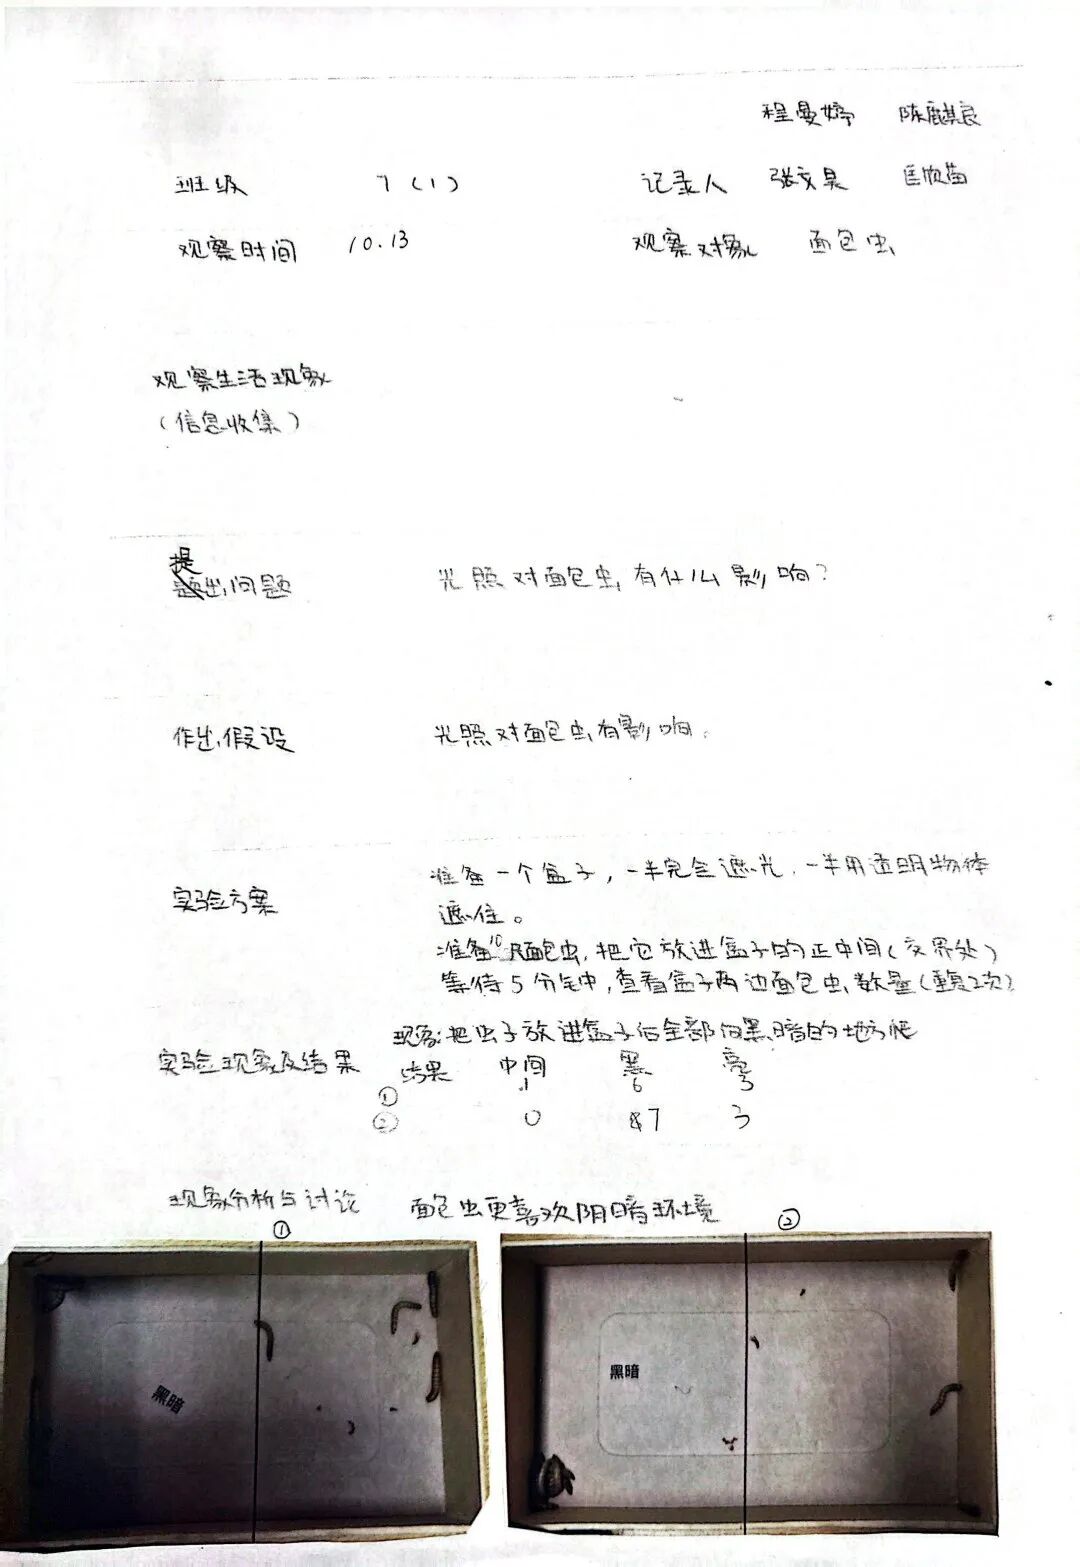 程曼婷 陈麒良
班级 7（1） 记录人 张文昊 匡欣苗
观察时间 10.13 观察对象 面包虫
观察生活现象
（信息收集）
提
出问题 光照对面包虫有什么影响？
作出假设 光照对面包虫有影响。
准备一个盒子，一半完全遮光，一半用透明物体
实验方案 遮住。
准备10只面包虫，把它放进盒子的正中间（交界处）
等待5分钟，查看盒子两边面包虫数量（重复2次）
现象：把虫子放进盒子后全部向黑暗的地方爬
实验现象及结果 结果 中间 黑 亮
① 1 6 3
② 0 7 3
现象分析与讨论 面包虫更喜欢阴暗环境
① ②
黑暗 黑暗